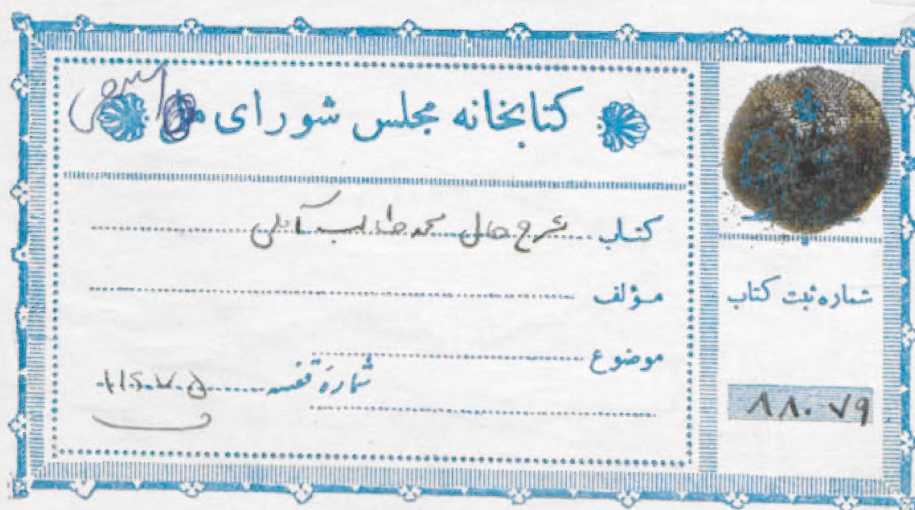 کتابخانه مجلس شورای ملی
کتاب شرح حال محمد طالب آملی
مؤلف
موضوع
شمارهٔ قفسه
شماره ثبت کتاب
۸۸۰۷۹